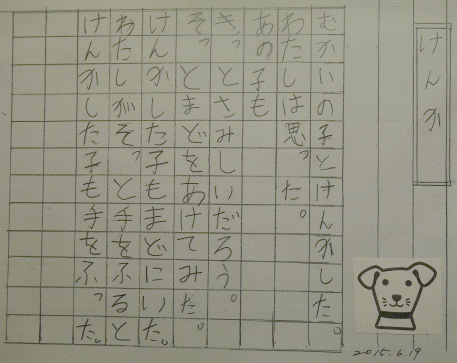 けんか
むかいの子とけんかした。
わたしは思った。
あの子も
きっとさみしいだろう。
そっとまどをあけてみた。
けんかした子もまどにいた。
わたしがそっと手をふると
けんかした子も手をふった。
2015.6.19